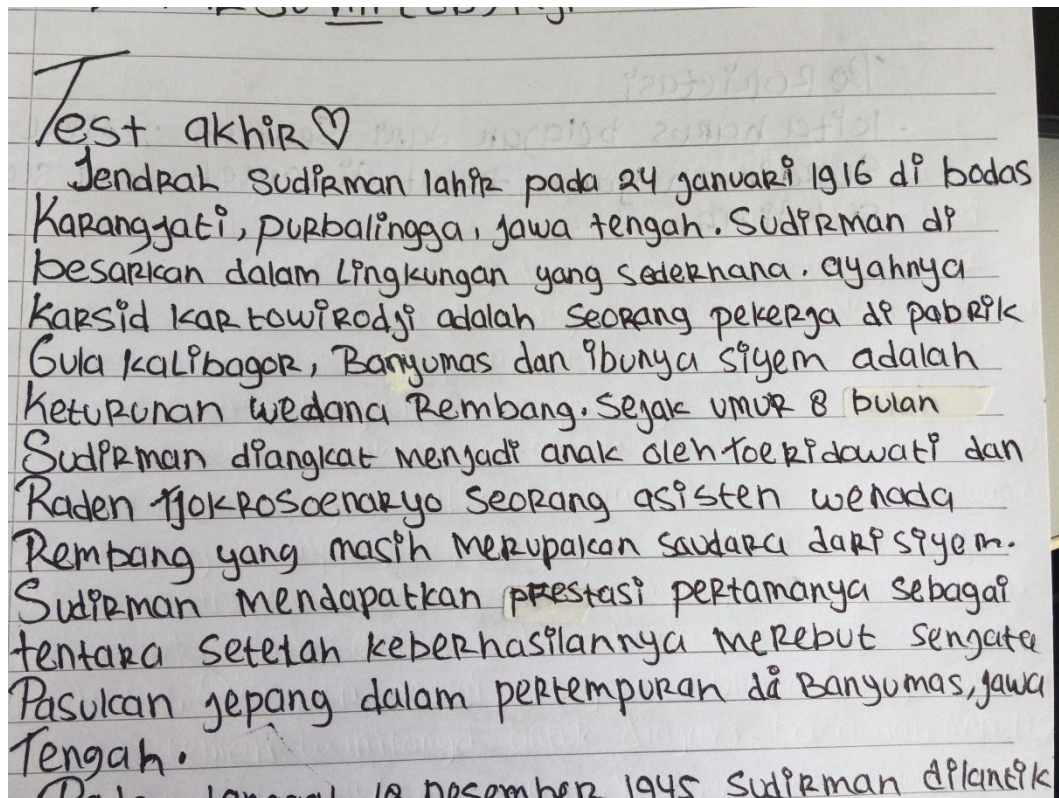 Test akhir ♡
Jendral Sudirman lahir pada 24 januari 1916 di bodas
Karangjati, purbalingga, jawa tengah. Sudirman di
besarkan dalam Lingkungan yang sederhana. ayahnya
Karsid kartowirodji adalah seorang pekerja di pabrik
Gula kalibagor, Banyumas dan ibunya siyem adalah
Keturunan wedana Rembang. Sejak umur 8 bulan
Sudirman diangkat menjadi anak oleh toeridawati dan
Raden tjokrosoenaryo seorang asisten wenada
Rembang yang masih merupakan saudara dari siyem.
Sudirman mendapatkan prestasi pertamanya sebagai
tentara setelah keberhasilannya merebut sengata
Pasukan jepang dalam pertempuran di Banyumas, jawa
Tengah.
1945 Sudirman dilantik